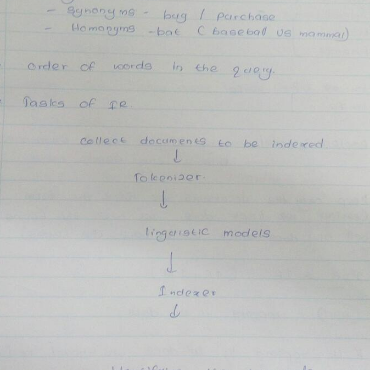 - Synonyms - bug / purchase
- Homonyms - bat ( basebal vs mammal)
order of words in the query
Tasks of IR
collect documents to be indexed
↓
Tokenizer
↓
linguistic models
↓
Indexer
↓